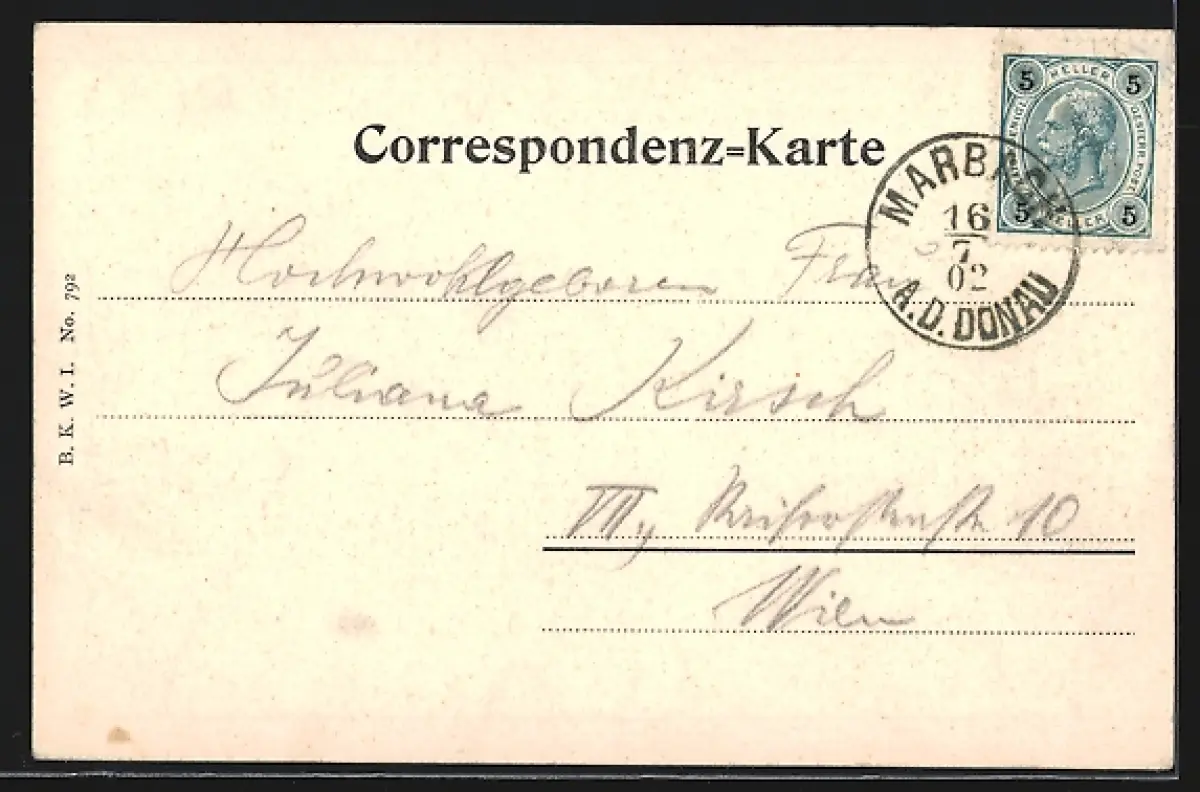 5 HELLER 5
OESTERR. POST
5 HELLER 5
Correspondenz=Karte
MARBACH
16
7
02
A.D. DONAU
Hochwohlgeboren Frau
Juliana Kirsch
10
Wien
B. K. W. I. No. 792